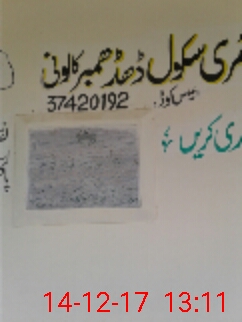 ئری سکول ڈھڈھمبر کالونی
ایمس کوڈ 37420192
ری کریں
14-12-17 13:11